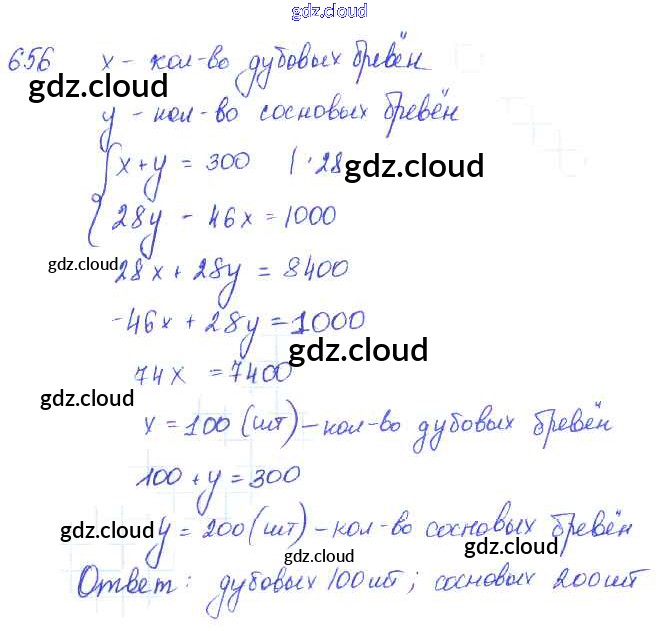 gdz.cloud
656 x - кол-во дубовых бревён
gdz.cloud
y - кол-во сосновых бревён
x + y = 300 | · 28
gdz.cloud
28y - 46x = 1000
gdz.cloud
28x + 28y = 8400
-46x + 28y = 1000
gdz.cloud
74x = 7400
gdz.cloud
x = 100 (шт) - кол-во дубовых бревён
100 + y = 300
gdz.cloud
y = 200 (шт) - кол-во сосновых бревён
gdz.cloud
gdz.cloud
Ответ: дубовых 100 шт; сосновых 200 шт